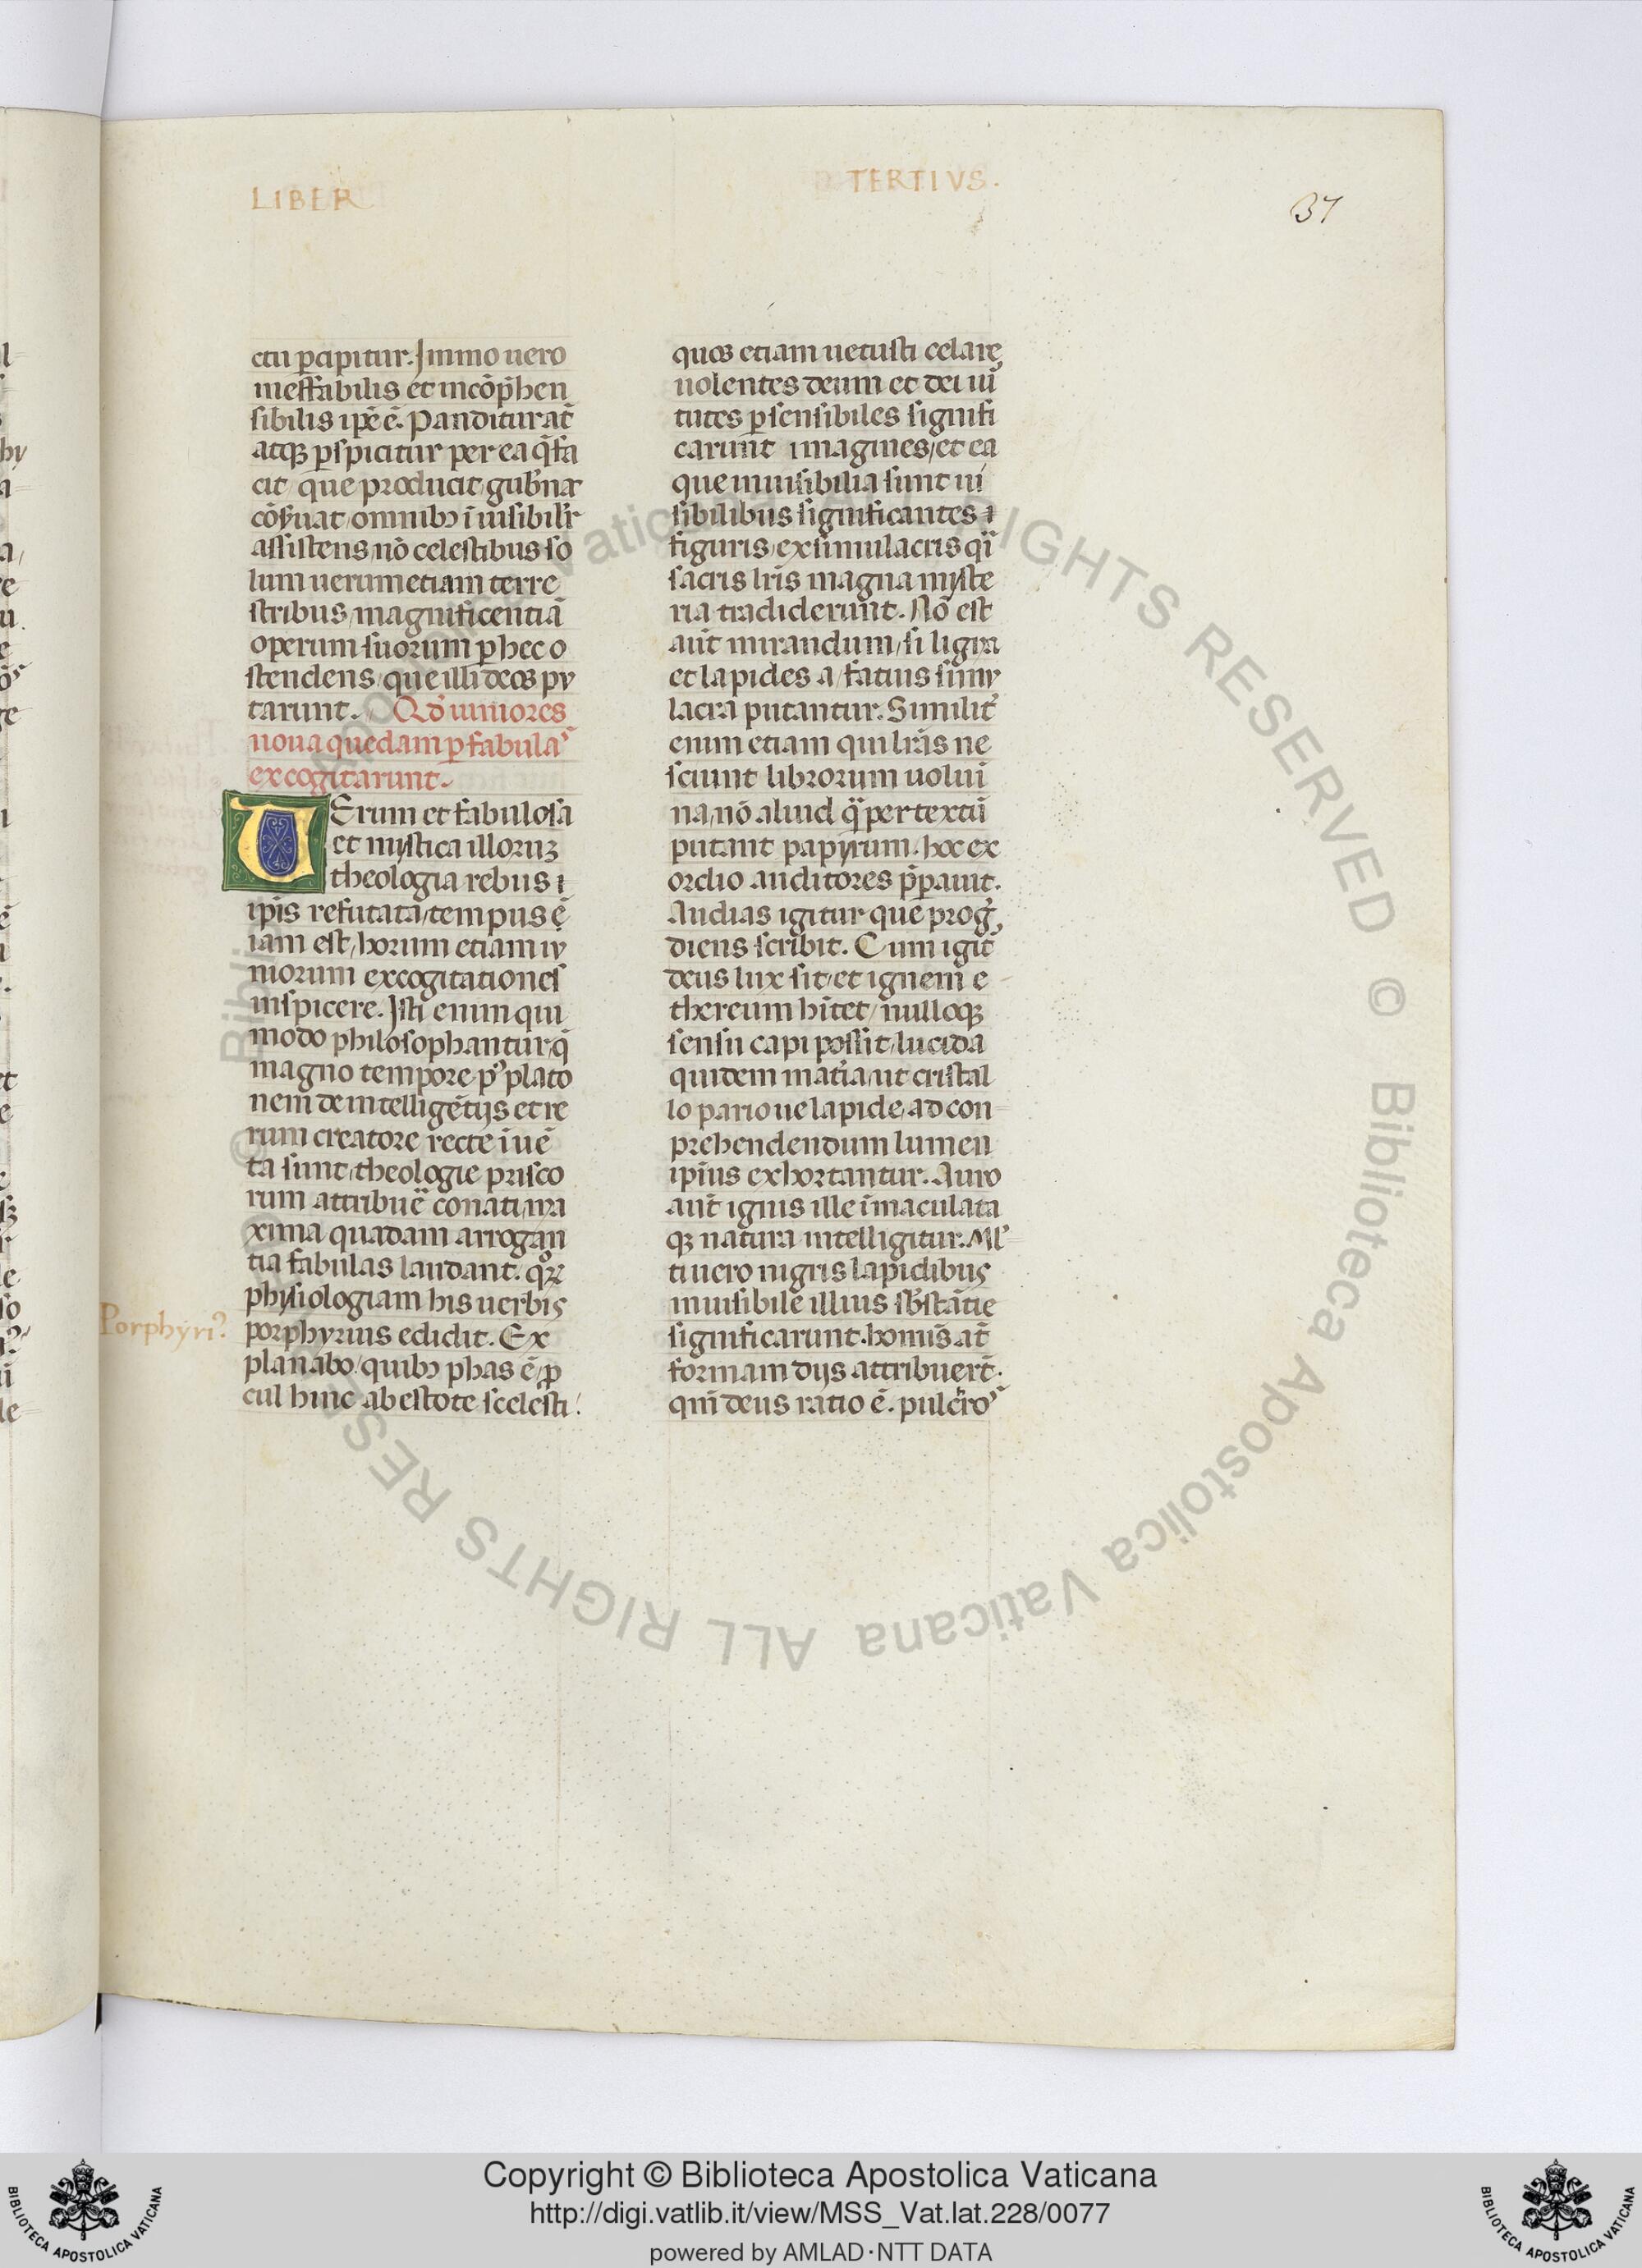 LIBER
TERTIVS.
37
ctu ꝑcipitur. Immo uero
ineffabilis et incōp̄hen
sibilis ip̄e ē. Panditur at̄
atqꝫ ꝑspicitur per ea q̄ fa
cit que producit gub̄nat
cōẛuat omnibꝫ īuisibilr̄
assistens nō celestibus so
lum uerum etiam terre
stribus magnificentiā
operum suorum ꝑ hec o
stendens, que illi deos pu
tarunt. Qđ iuniores
noua quedam ꝑ fabulas
excogitarunt.
VErum et fabulosa
et mystica illoruꝫ
theologia rebus ī
ip̄is refutata, tempus ē
iam est, horum etiam iu
niorum excogitationes
inspicere. Isti enim qui
modo philosophantur, q̄
magno tempore pꝰ plato
nem de intelligētijs et re
rum creatore recte īuē
ta sunt, theologie prisco
rum attribuē conati, ma
xima quadam arrogan
tia fabulas laudant. quoꝝ
physiologiam his uerbis
porphyrius edidit. Ex
planabo, quibꝫ phas ē, ꝓ
cul hinc abestote scelesti!
Porphyriꝰ
quos etiam uetusti celare
uolentes deum et dei uir
tutes ꝑ sensibiles signifi
carunt imagines, et ea
que inuisibilia sunt ui
sibilibus significantes ī
figuris, ex simulacris q̄ī
sacris lr̄is magna myste
ria tradiderunt. Nō est
aūt mirandum, si ligna
et lapides a fatuis simu
lacra putantur. Similit̄
enim etiam qui lr̄as ne
sciunt librorum uolui
na, nō aliud q̄ per textū
putant papyrum. hoc ex
ordio auditores p̄parauit.
Audias igitur que proḡ
diens scribit. Cum igit̄
deus lux sit, et ignem e
thereum hītet, nulloqꝫ
sensu capi possit, lucida
quidem mat̄ia, ut cristal
lo pario ue lapide, ad con
prehendendum lumen
ip̄ius exhortantur. Auro
aūt ignis ille īmaculata
qꝫ natura intelligitur. Ml̄
ti uero nigris lapidibus
inuisibile illius sb̄stātie
significarunt. homīs at̄
formam dijs attribuerūt.
qm̄ deus ratio ē. pulcros
Copyright © Biblioteca Apostolica Vaticana
http://digi.vatlib.it/view/MSS_Vat.lat.228/0077
powered by AMLAD·NTT DATA
BIBLIOTECA APOSTOLICA VATICANA
BIBLIOTECA APOSTOLICA VATICANA
© Biblioteca Apostolica Vaticana ALL RIGHTS RESERVED © Biblioteca Apostolica Vaticana ALL RIGHTS RESERVED